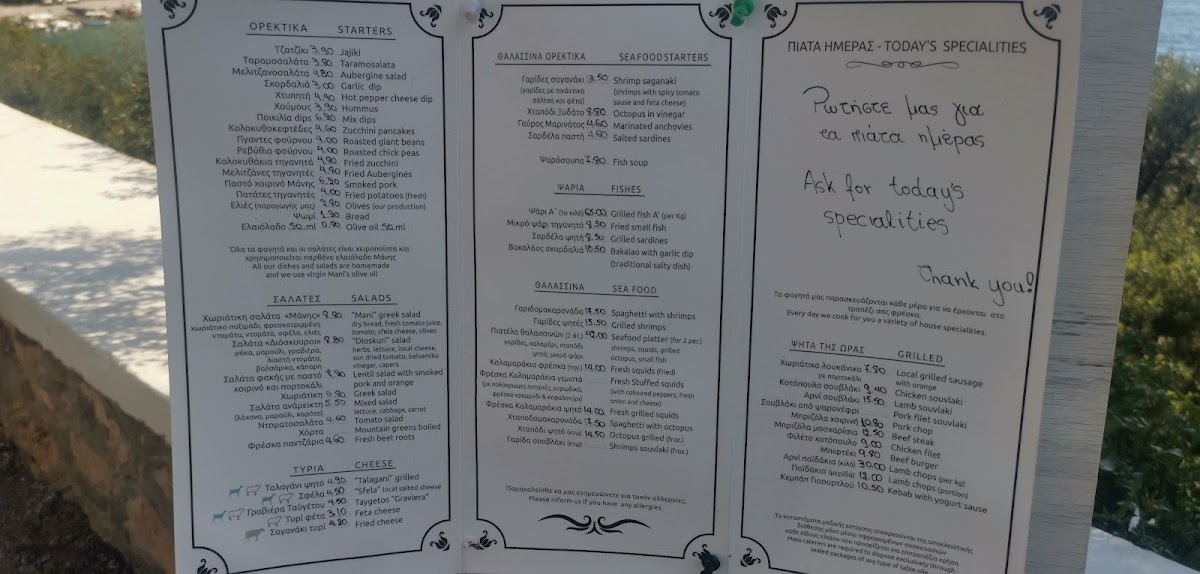 ΟΡΕΚΤΙΚΑ STARTERS
Τζατζίκι 3.90 Jajiki
Ταραμοσαλάτα 3.80 Taramosalata
Μελιτζανοσαλάτα 4.80 Aubergine salad
Σκορδαλιά 3.00 Garlic dip
Χτυπητή 4.90 Hot pepper cheese dip
Χούμους 3.90 Hummus
Ποικιλία dips 6.90 Mix dips
Κολοκυθοκεφτέδες 4.60 Zucchini pancakes
Γίγαντες φούρνου 4.00 Roasted giant beans
Ρεβύθια φούρνου 4.00 Roasted chick peas
Κολοκυθάκια τηγανητά 4.80 Fried zucchini
Μελιτζάνες τηγανητές 4.80 Fried Aubergines
Παστό χοιρινό Μάνης Smoked pork
Πατάτες τηγανητές 4.00 Fried potatoes (fresh)
Ελιές (παραγωγής μας) 2.80 Olives (our production)
Ψωμί Bread
Ελαιόλαδο 50 ml 0.90 Olive oil 50 ml
Όλα τα φαγητά και οι σαλάτες είναι χειροποίητα και
χρησιμοποιείται παρθένο ελαιόλαδο Μάνης
All our dishes and salads are homemade
and we use virgin Mani's olive oil
ΣΑΛΑΤΕΣ SALADS
Χωριάτικη σαλάτα «Μάνης» 8.80 "Mani" greek salad
χωριάτικο παξιμάδι, φρεσκοτριμμένη dry bread, fresh tomato juice,
ντομάτα, ντομάτα, σφέλα, ελιές tomato, sfela cheese, olives
Σαλάτα «Διόσκουροι» 8.80 "Dioskuri" salad
ρόκα, μαρούλι, γραβιέρα, herbs, lettuce, local cheese,
λιαστή ντομάτα, sun dried tomato, balsamiko
βαλσάμικο, κάπαρη vinegar, capers
Σαλάτα φακής με παστό Lentil salad with smoked
χοιρινό και πορτοκάλι pork and orange
Χωριάτικη Greek salad
Σαλάτα ανάμεικτη 5.50 Mixed salad
(λάχανο, μαρούλι, καρότο) lettuce, cabbage, carrot
Ντοματοσαλάτα 4.60 Tomato salad
Χόρτα Mountain greens boiled
Φρέσκα παντζάρια 4.60 Fresh beet roots
ΤΥΡΙΑ CHEESE
Ταλαγάνι ψητό 4.90 "Talagani" grilled
Σφέλα 4.50 "Sfela" local salted cheese
Γραβιέρα Ταϋγέτου 4.50 Taygetos "Graviera"
Τυρί φέτα 3.10 Feta cheese
Σαγανάκι τυρί 4.80 Fried cheese
ΘΑΛΑΣΣΙΝΑ ΟΡΕΚΤΙΚΑ SEAFOOD STARTERS
Γαρίδες σαγανάκι 13.50 Shrimp saganaki
(γαρίδες με πικάντικη (shrimps with spicy tomato
σάλτσα και φέτα) sauce and feta cheese)
Χταπόδι Ξυδάτο 8.80 Octopus in vinegar
Γαύρος Μαρινάτος 4.60 Marinated anchovies
Σαρδέλα παστή 4.80 Salted sardines
Ψαρόσουπα Fish soup
ΨΑΡΙΑ FISHES
Ψάρι Α΄ (το κιλό) Grilled fish A' (per Kg)
Μικρό ψάρι τηγανητό 8.50 Fried small fish
Σαρδέλα ψητή 8.50 Grilled sardines
Βακαλάος σκορδαλιά 10.50 Bakaliao with garlic dip
(traditional salty dish)
ΘΑΛΑΣΣΙΝΑ SEA FOOD
Γαριδομακαρονάδα Spaghetti with shrimps
Γαρίδες ψητές 15.50 Grilled shrimps
Πιατέλα θαλασσινών (2 άτ.) 42.00 Seafood platter (for 2 per.)
γαρίδες, καλαμάρι, χταπόδι shrimps, squids, grilled
ψητό, μικρό ψάρι octopus, small fish
Καλαμαράκια φρέσκα (τηγ.) 14.00 Fresh squids (fried)
Φρέσκα Καλαμαράκια γεμιστά Fresh Stuffed squids
(με πολύχρωμες πιπεριές, μυρωδικά, (with coloured peppers, fresh
φρέσκο κρεμμύδι & κεφαλοτύρι) onion and cheese)
Φρέσκα Καλαμαράκια ψητά 14.00 Fresh grilled squids
Χταποδομακαρονάδα Spaghetti with octopus
Χταπόδι ψητό (κτψ) 14.50 Octopus grilled (froz.)
Γαρίδα σουβλάκι (κτψ) Shrimps souvlaki (froz.)
Παρακαλείσθε να μας ενημερώνετε για τυχόν αλλεργίες.
Please inform us if you have any allergies.
ΠΙΑΤΑ ΗΜΕΡΑΣ - TODAY'S SPECIALITIES
Ρωτήστε μας για
τα πιάτα ημέρας
Ask for today's
specialities
Thank you!
Τα φαγητά μας παρασκευάζονται κάθε μέρα για να έρχονται στο
τραπέζι σας φρέσκα.
Every day we cook for you a variety of house specialities.
ΨΗΤΑ ΤΗΣ ΩΡΑΣ GRILLED
Χωριάτικο λουκάνικο Local grilled sausage
με πορτοκάλι with orange
Κοτόπουλο σουβλάκι 9.40 Chicken souvlaki
Αρνί σουβλάκι 15.50 Lamb souvlaki
Σουβλάκι από ψαρονέφρι Pork filet souvlaki
Μπριζόλα χοιρινή 10.80 Pork chop
Μπριζόλα μοσχαρίσια 12.50 Beef steak
Φιλέτο κοτόπουλο 9.00 Chicken filet
Μπιφτέκι 9.80 Beef burger
Αρνί παϊδάκια (κιλό) 30.00 Lamb chops (per kg)
Παϊδάκια (μερίδα) 12.00 Lamb chops (portion)
Κεμπάπ Γιαουρτλού 10.50 Kebab with yogurt sause
Τα καταστήματα μαζικής εστίασης υποχρεούνται της αποκλειστικής
διάθεσης μόνο μέσω σφραγισμένων συσκευασιών
κάθε είδους ελαίου που προορίζεται για επιτραπέζια χρήση
Mass caterers are required to dispose exclusively through
sealed packages of any type of table oils